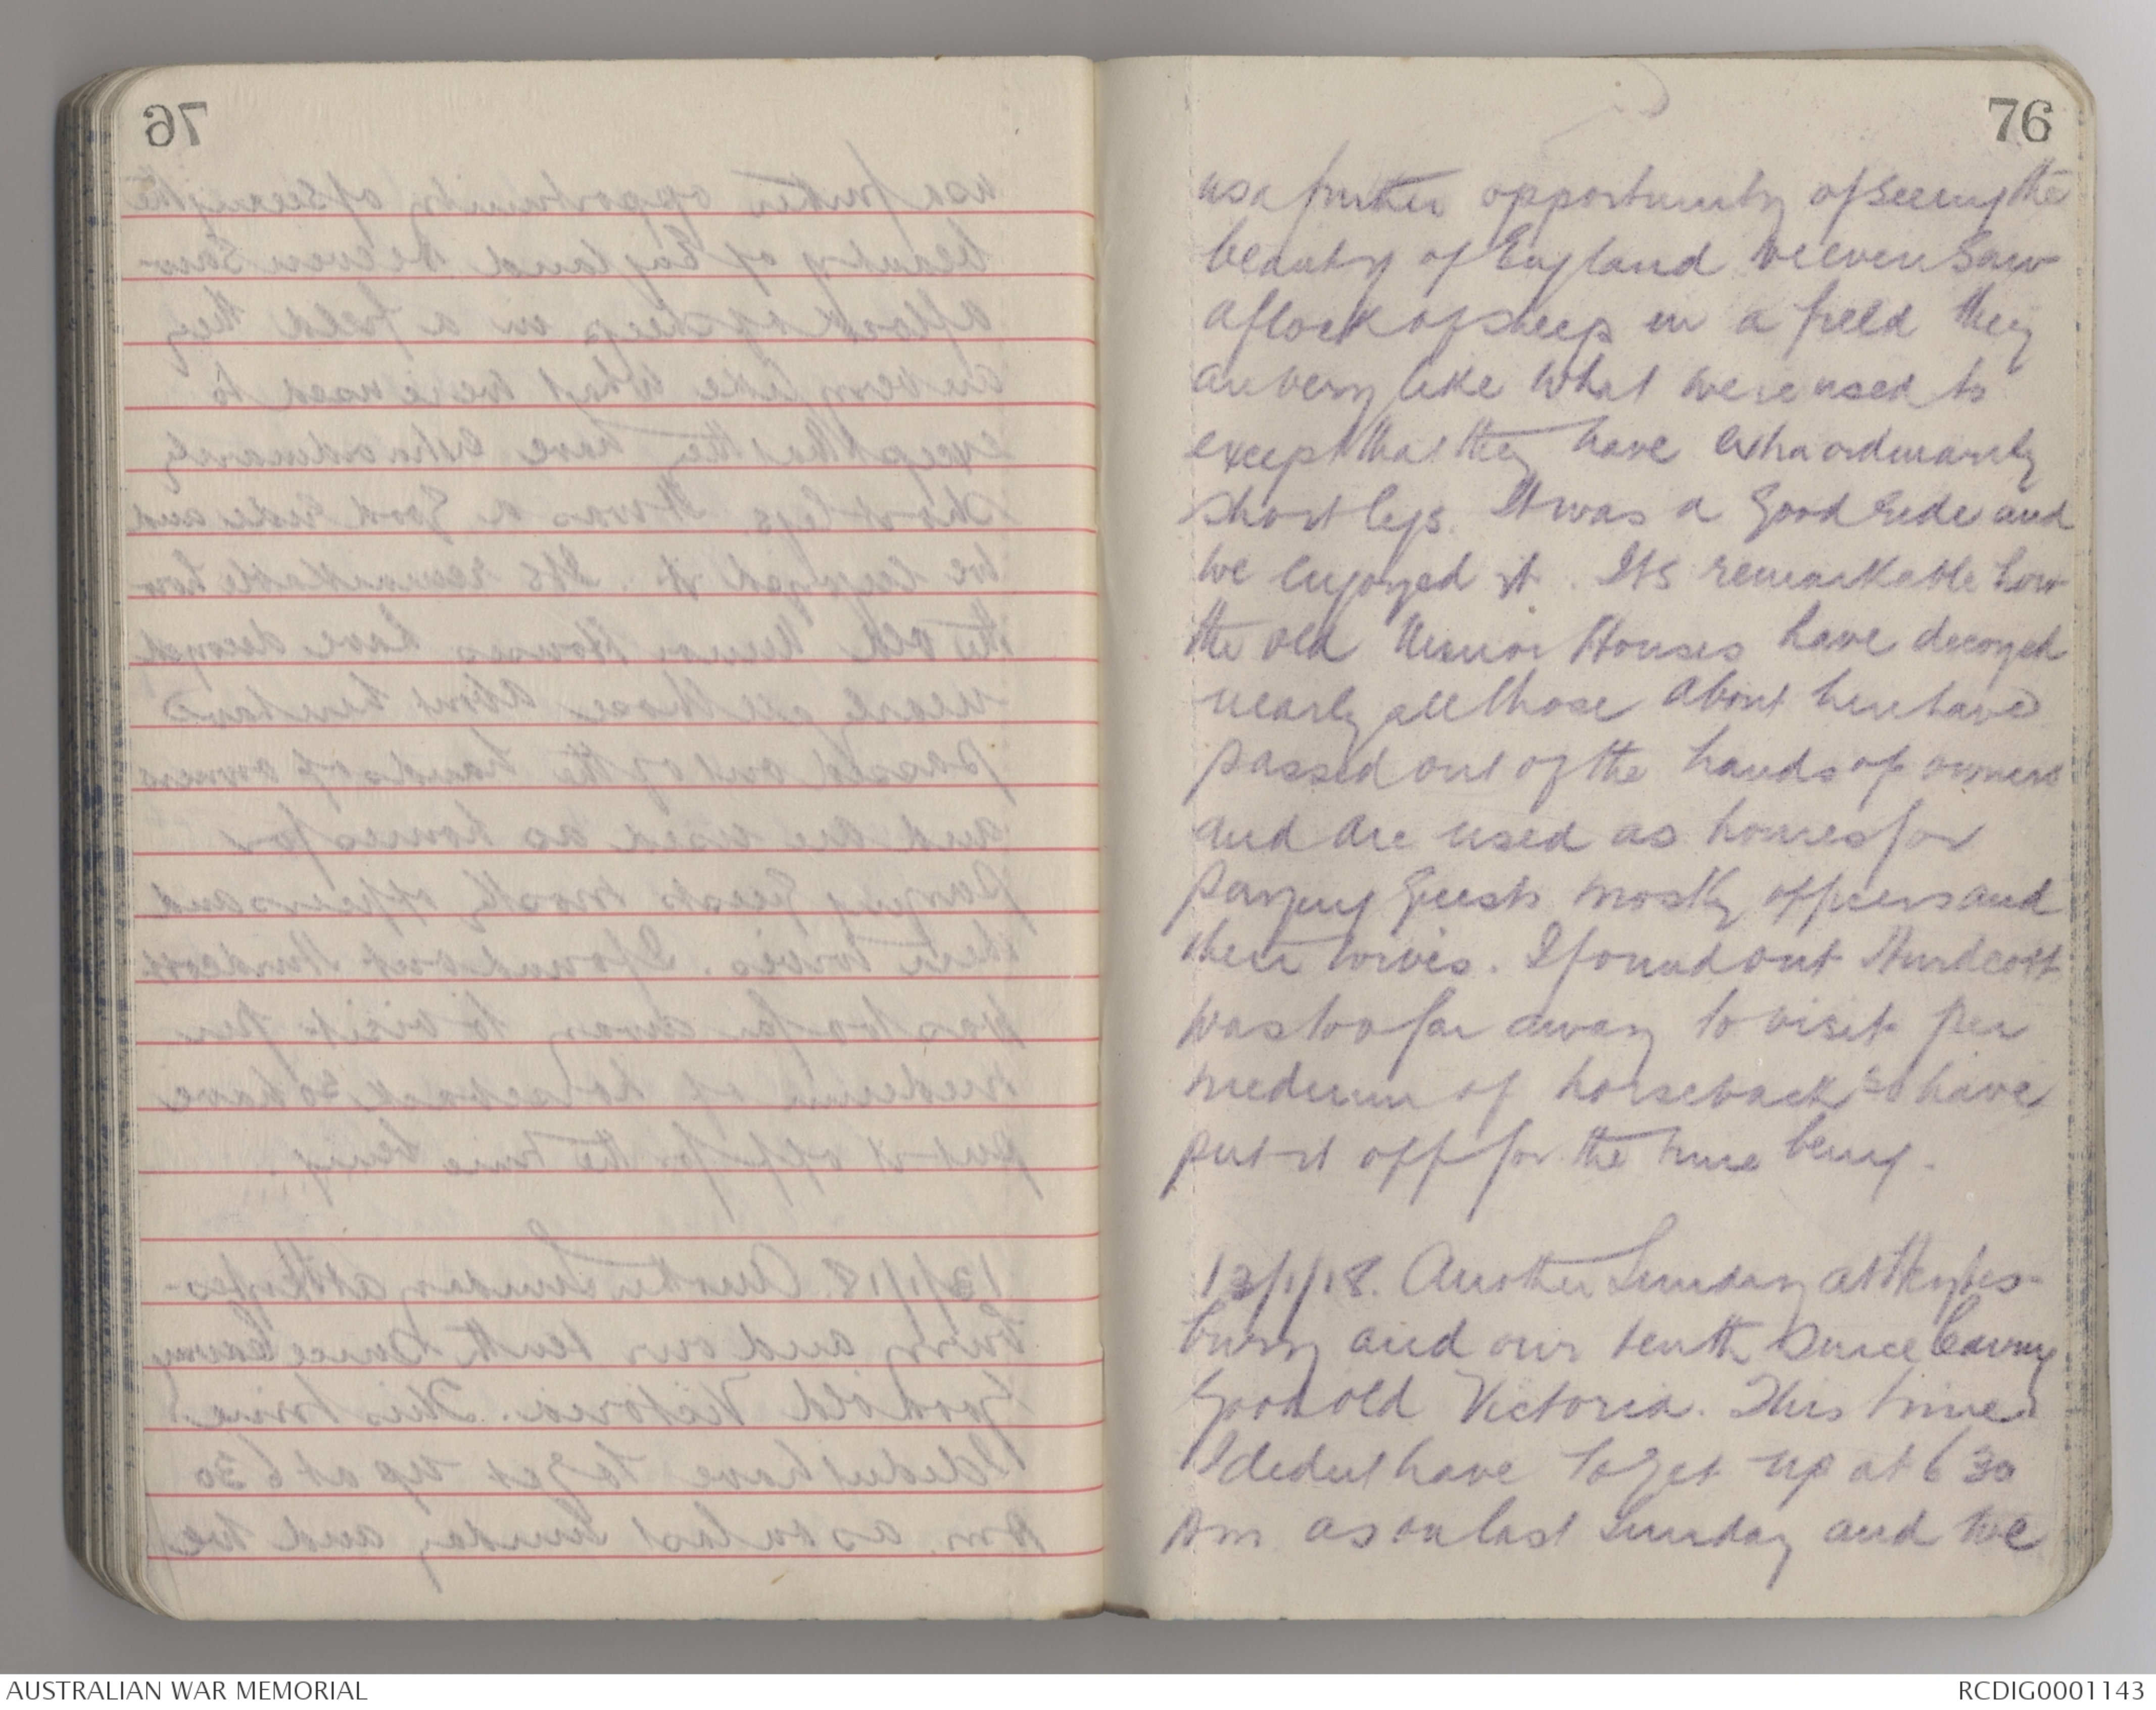 76
us a further opportunity of seeing the
beauty of England we even saw
a flock of sheep in a field they
are very like what we're used to
except that they have extraordinarily
short legs. It was a good ride and
we enjoyed it. Its remarkable how
the old Houses have decayed
nearly all those about here have
passed out of the hands of owners
and are used as homes for
paying guests mostly officers and
their wives. I found out Hurdcott
was too far away to visit per
medium of horseback so have
put it off for the time being.
13/1/18. Another Sunday at Heytes-
bury and our tenth since leaving
good old Victoria. This time
I didnt have to get up at 6 30
Am as on last Sunday and we
AUSTRALIAN WAR MEMORIAL
RCDIG0001143